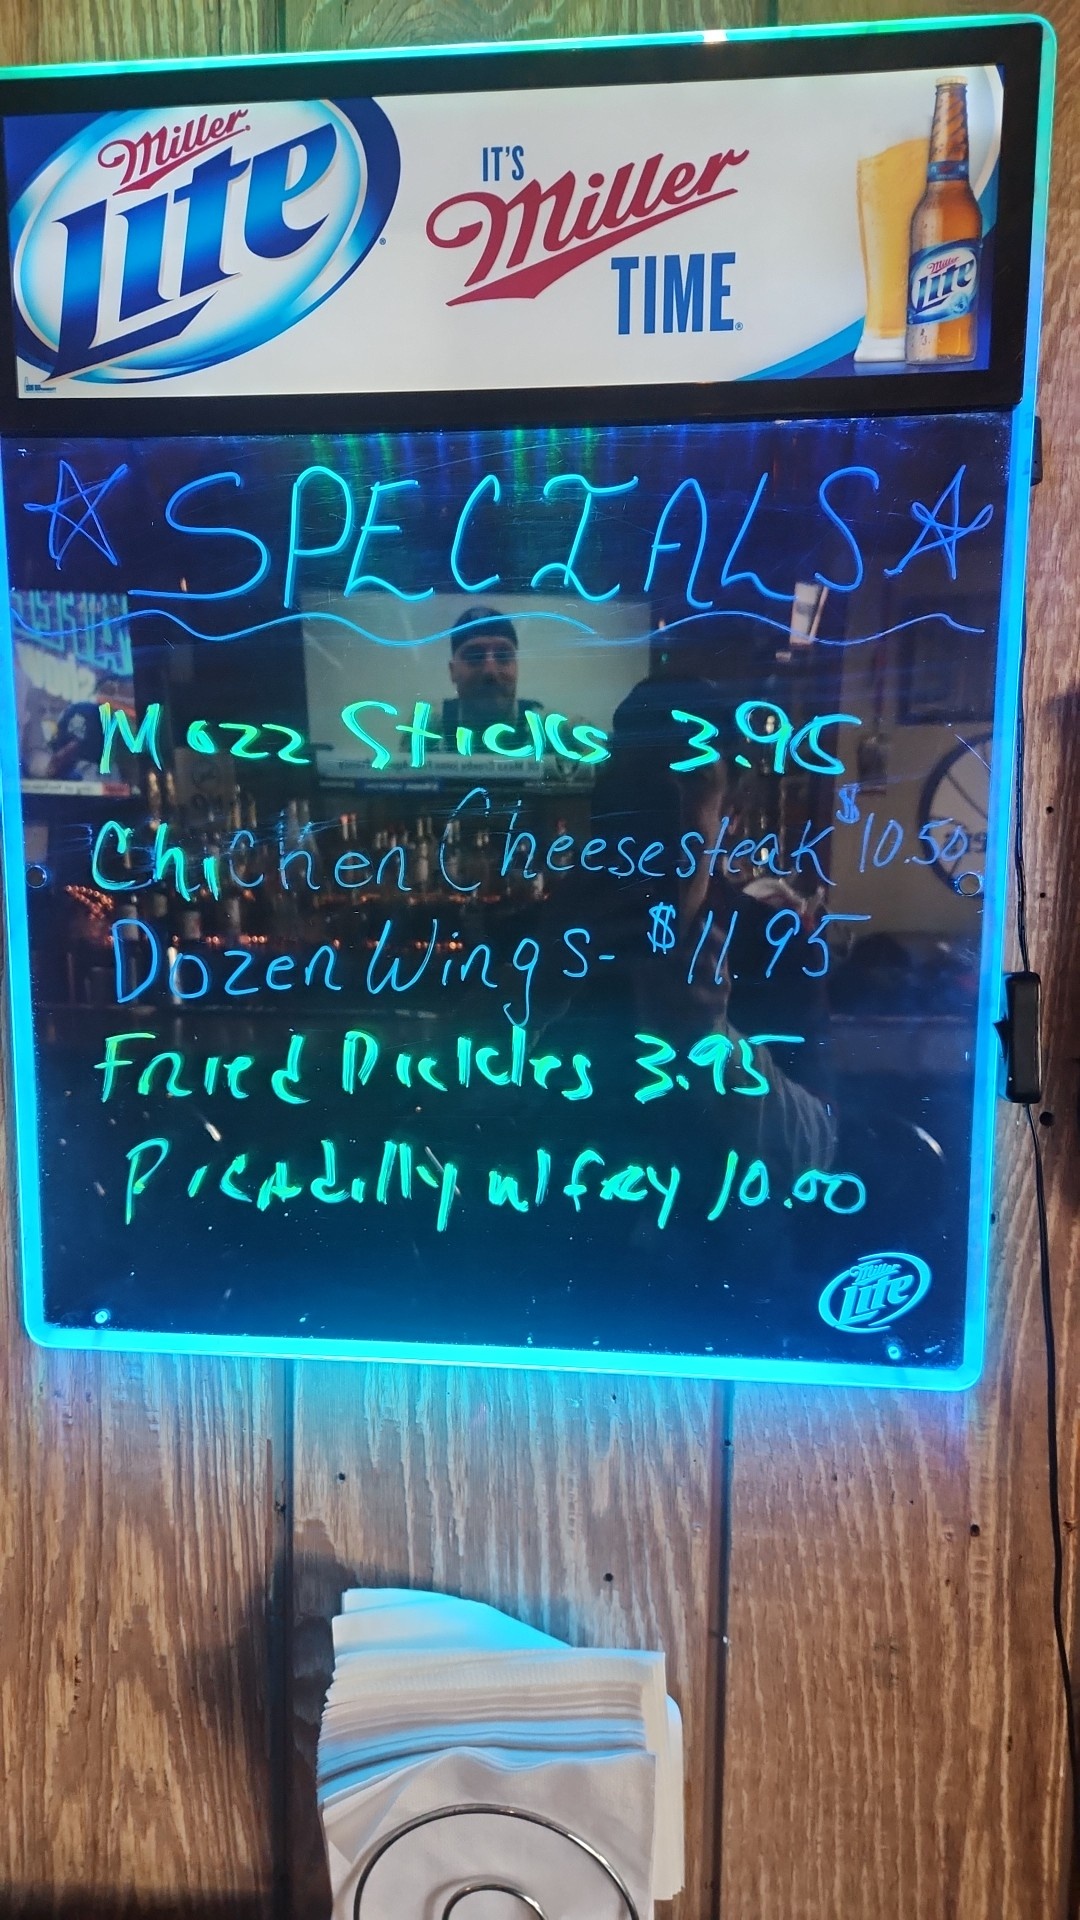 Miller
Lite
IT'S
Miller
TIME
Miller
Lite
SPECIALS
Mozz Sticks 3.95
Chicken Cheesesteak $10.50
Dozen Wings- $11.95
Fried Pickles 3.95
Picadilly w/fry 10.00
Miller
Lite